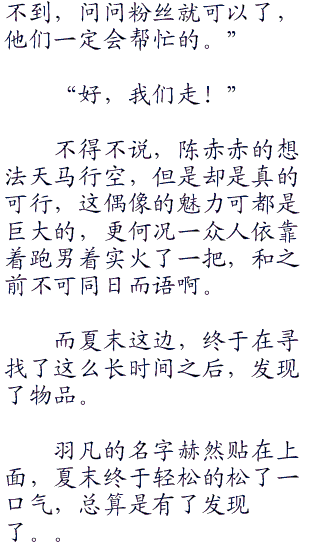 不到，问问粉丝就可以了，
他们一定会帮忙的。”
“好，我们走！”
不得不说，陈赤赤的想
法天马行空，但是却是真的
可行，这偶像的魅力可都是
巨大的，更何况一众人依靠
着跑男着实火了一把，和之
前不可同日而语啊。
而夏末这边，终于在寻
找了这么长时间之后，发现
了物品。
羽凡的名字赫然贴在上
面，夏末终于轻松的松了一
口气，总算是有了发现
了。。